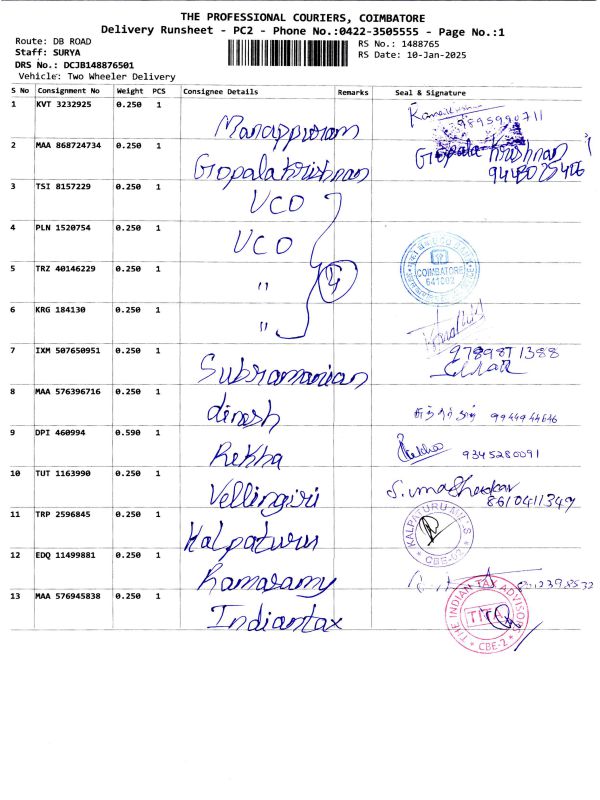 THE PROFESSIONAL COURIERS, COIMBATORE
Delivery Runsheet - PC2 - Phone No.:0422-3505555 - Page No.:1
Route: DB ROAD
Staff: SURYA
DRS No.: DCJB148876501
Vehicle: Two Wheeler Delivery
RS No.: 1488765
RS Date: 10-Jan-2025
S No Consignment No Weight PCS Consignee Details Remarks Seal & Signature
1 KVT 3232925 0.250 1 Manappuram 9895990711
2 MAA 868724734 0.250 1 Gopalakrishnan Gopala Krishnan
9443025406
3 TSI 8157229 0.250 1 UCO
4 PLN 1520754 0.250 1 UCO
5 TRZ 40146229 0.250 1 "
COIMBATORE
641002
6 KRG 184130 0.250 1 "
7 IXM 507650951 0.250 1 Subramanian 9789871388
8 MAA 576396716 0.250 1 dinesh 9944944646
9 DPI 460994 0.590 1 Rekha Rekha 9345280091
10 TUT 1163990 0.250 1 Vellingiri S.uma Shankar
8610411349
11 TRP 2596845 0.250 1 Kalpaturu KALPATURU MILLS
CBE-02
12 EDQ 11499881 0.250 1 Ramasamy
13 MAA 576945838 0.250 1 Indiantax THE INDIAN TAX ADVISORS
TITA
CBE-2